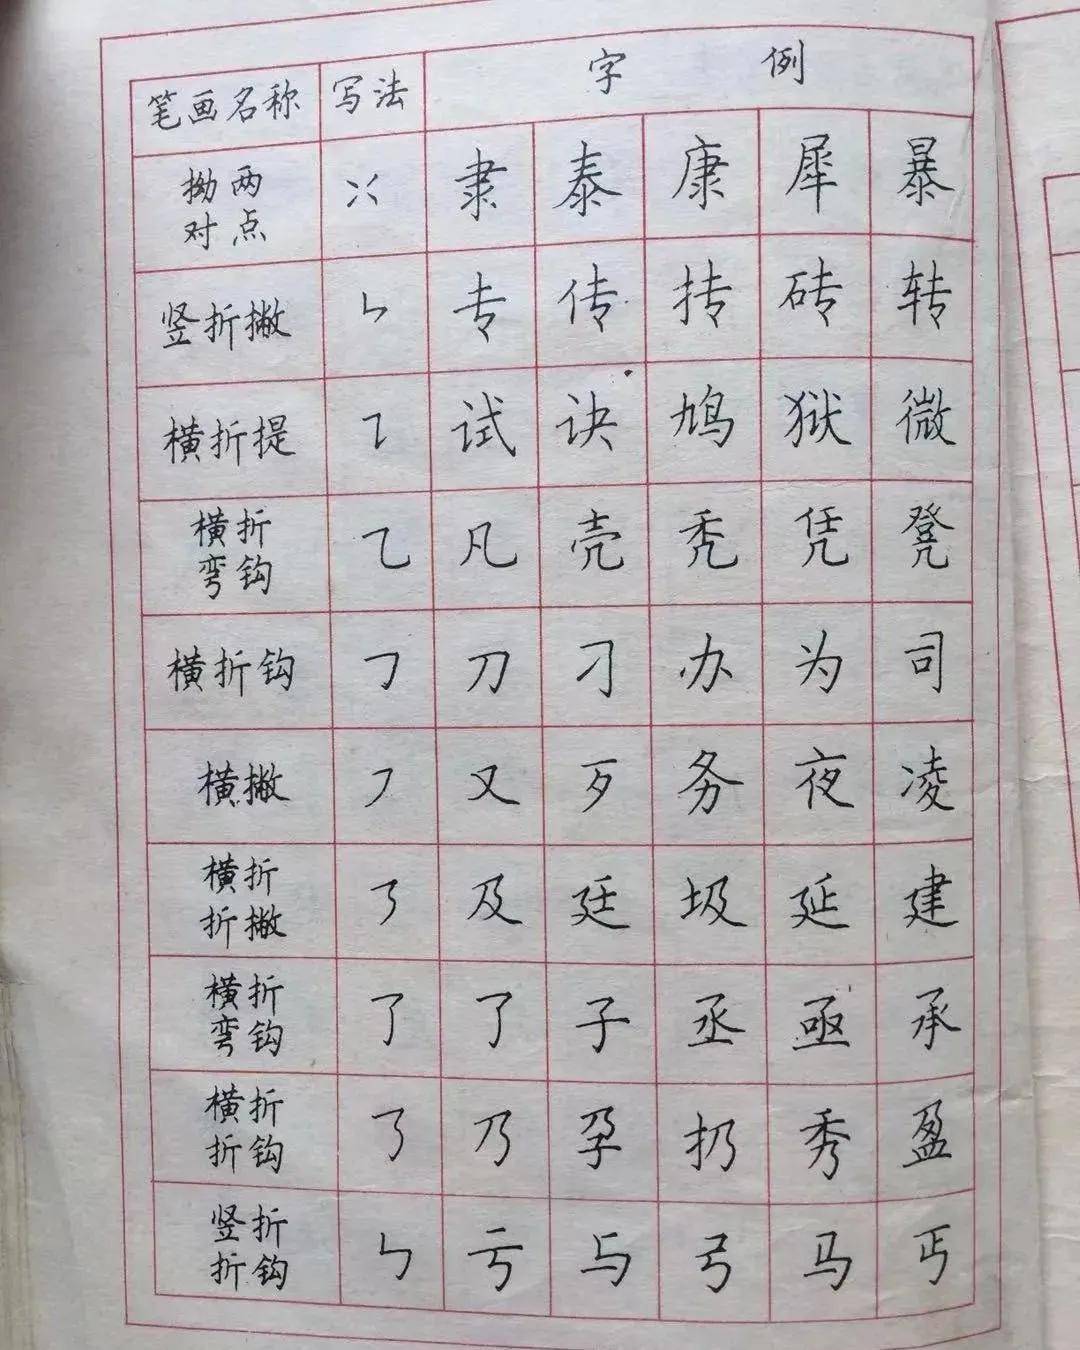 笔画名称 写法 字 例
拗两对点 隶 泰 康 犀 暴
竖折撇 专 传 抟 砖 转
横折提 ㇊ 试 诀 鸠 狱 微
横折弯钩 ㇈ 凡 壳 秃 凭 凳
横折钩 ㇆ 刀 刁 办 为 司
横撇 ㇇ 又 歹 务 夜 凌
横折折撇 ㇋ 及 廷 圾 延 建
横折弯钩 了 子 丞 亟 承
横折折钩 ㇡ 乃 孕 扔 秀 盈
竖折折钩 ㇉ 亏 与 弓 马 丐